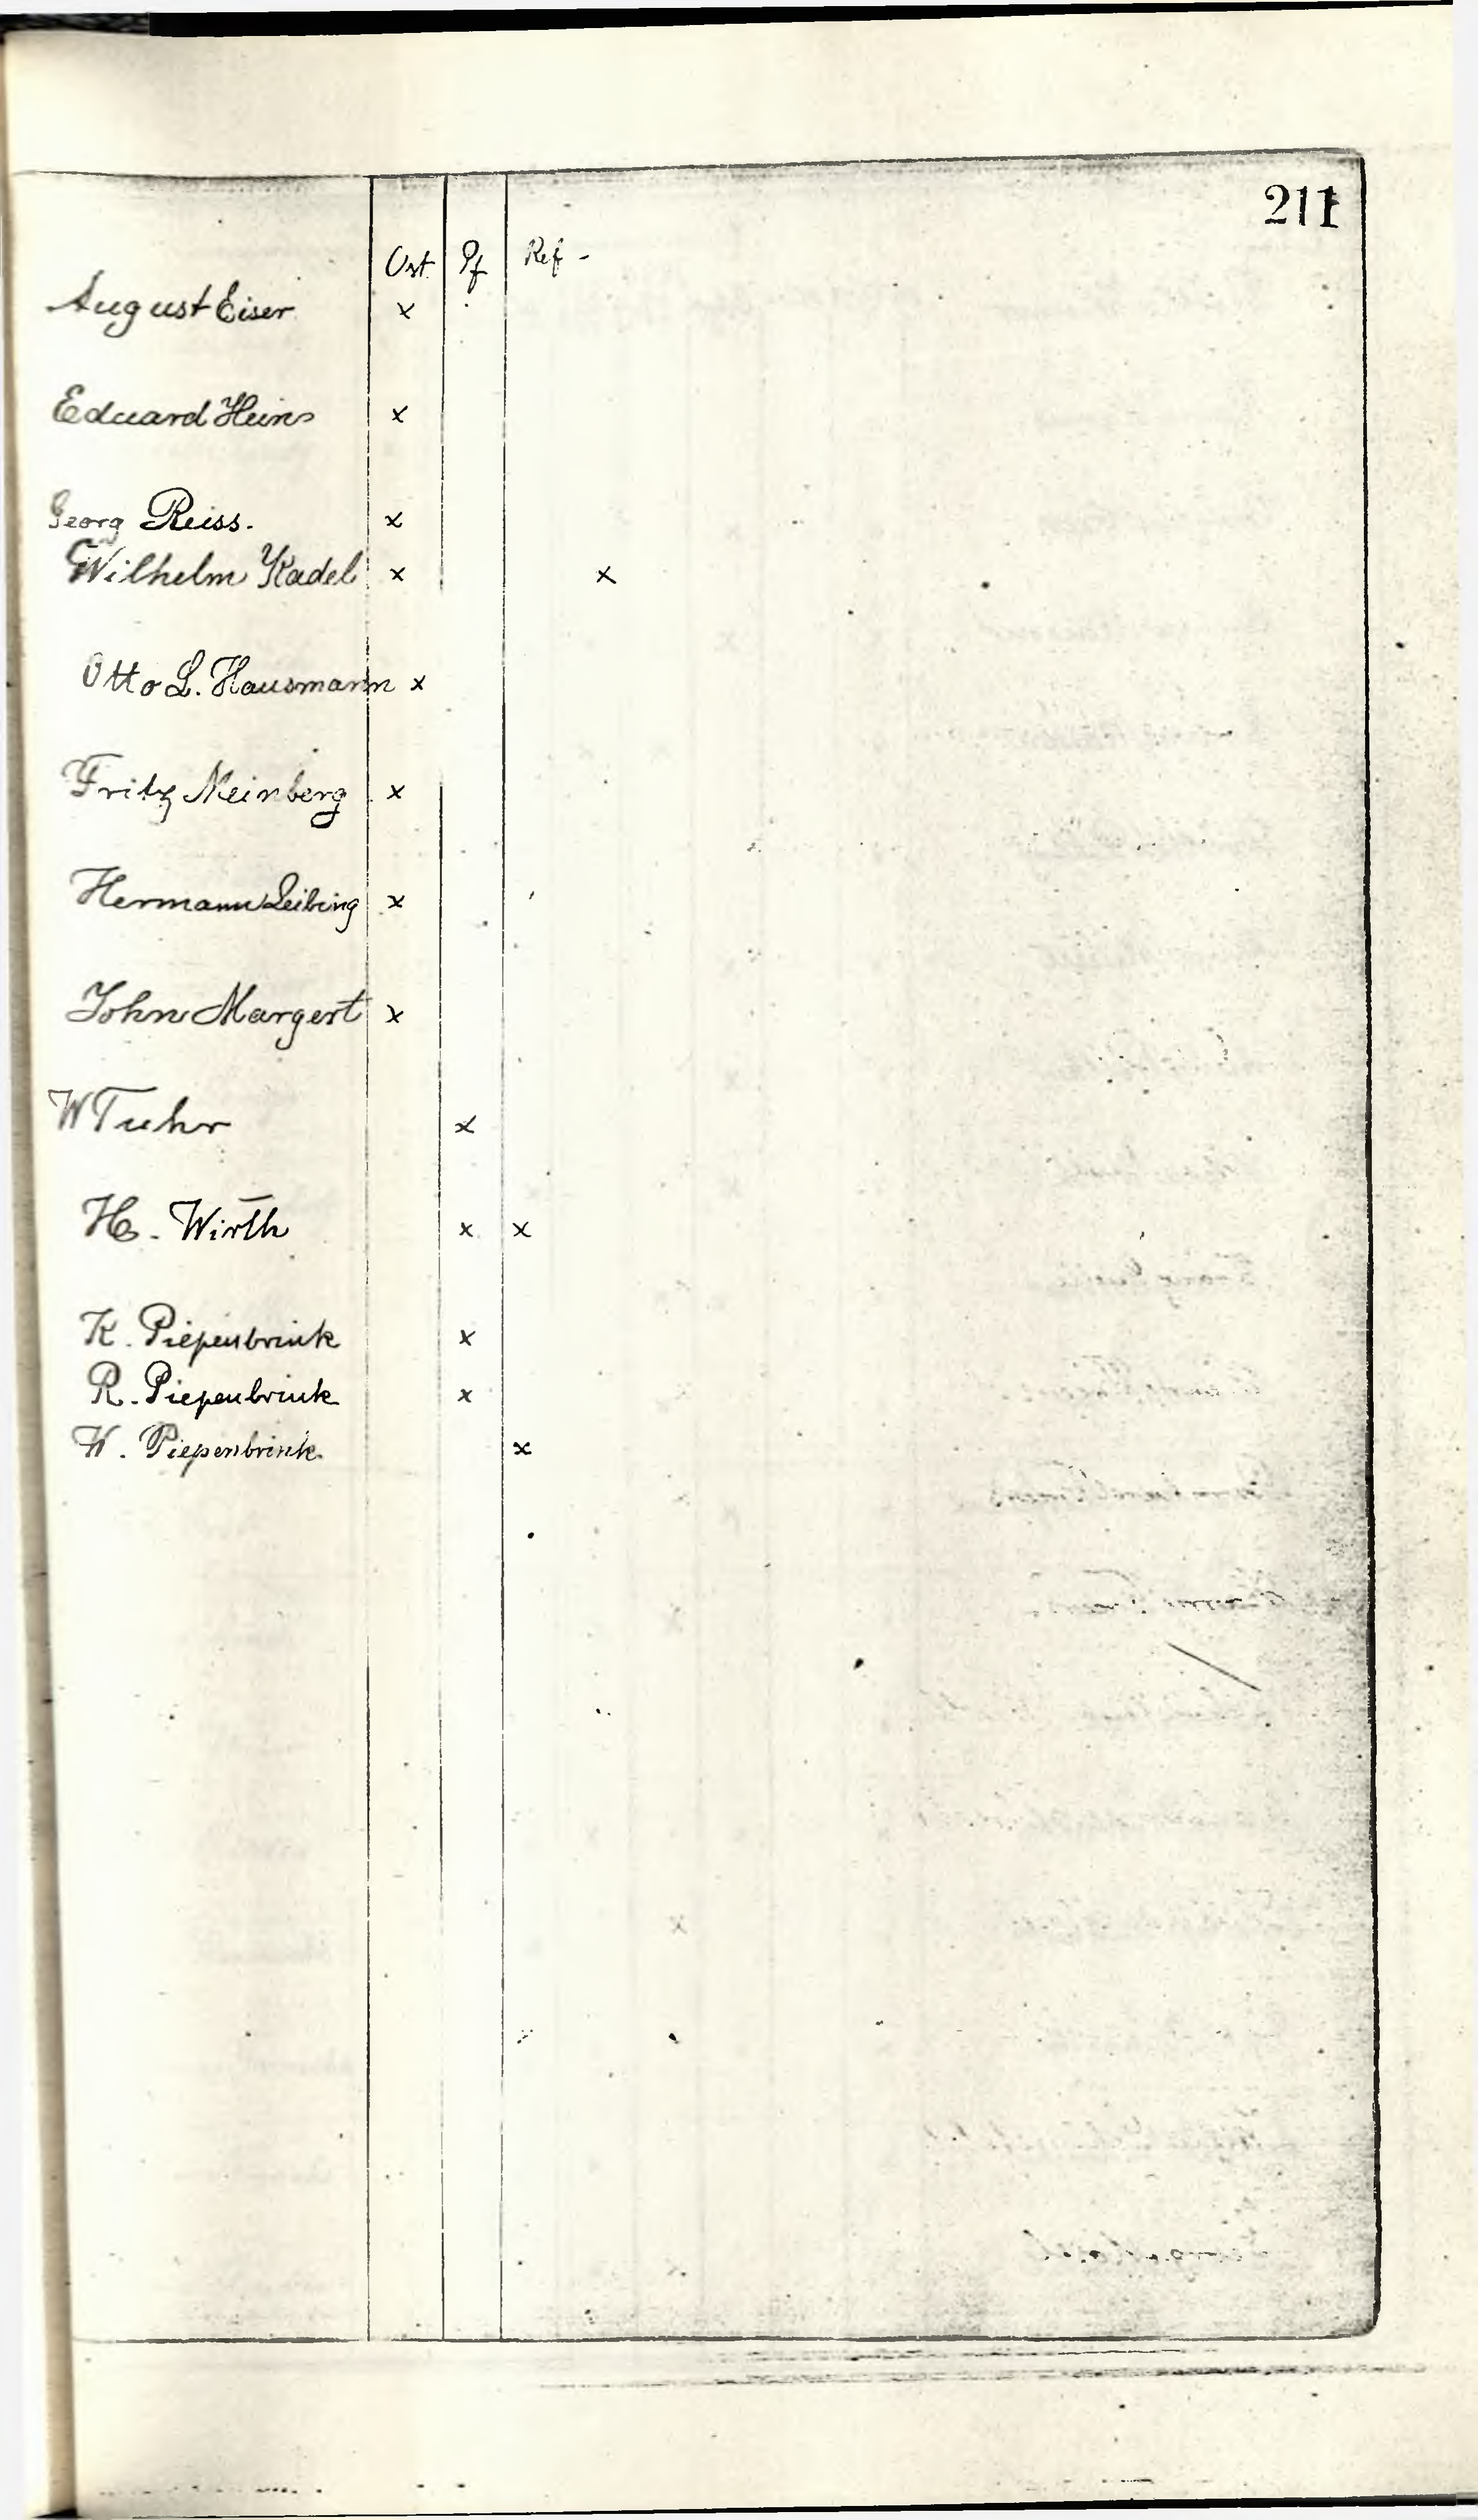 211
Ort Pf Ref -
August Eiser x
Eduard Heins x
Georg Reiss. x
Wilhelm Kadel x x
Otto L. Hausmann x
Fritz Meinberg x
Hermann Leibing x
John Margert x
W Tuhr x
H. Wirth x x
K. Piepenbrink x
R. Piepenbrink x
W. Piepenbrink x